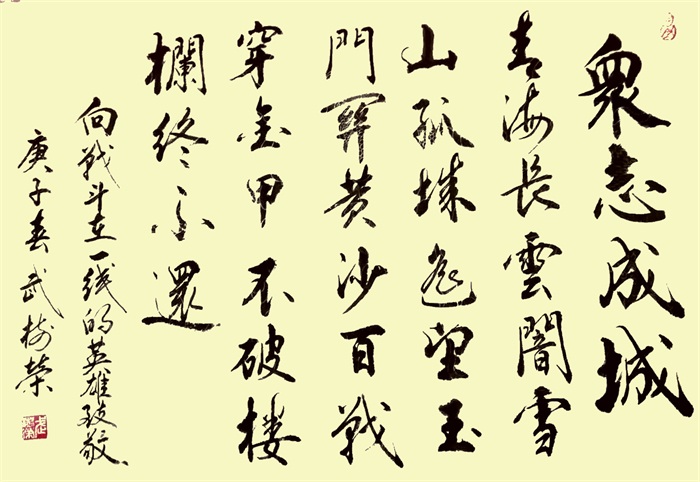 衆志成城
青海長雲闇雪
山孤城遥望玉
門關黄沙百戰
穿金甲不破楼
欄終不還
向战斗在一线的英雄致敬
庚子春武树荣